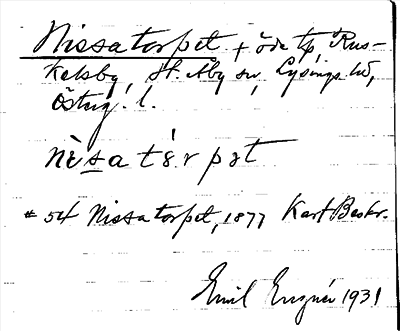 Nissatorpet + öde tp, Rus-
kelsby, St. Åby sn, Lysings hd,
Östug. l.
nìsatɵ́rpət
# 54 Nissatorpet, 1877 Kart Beskr.
Emil 1931